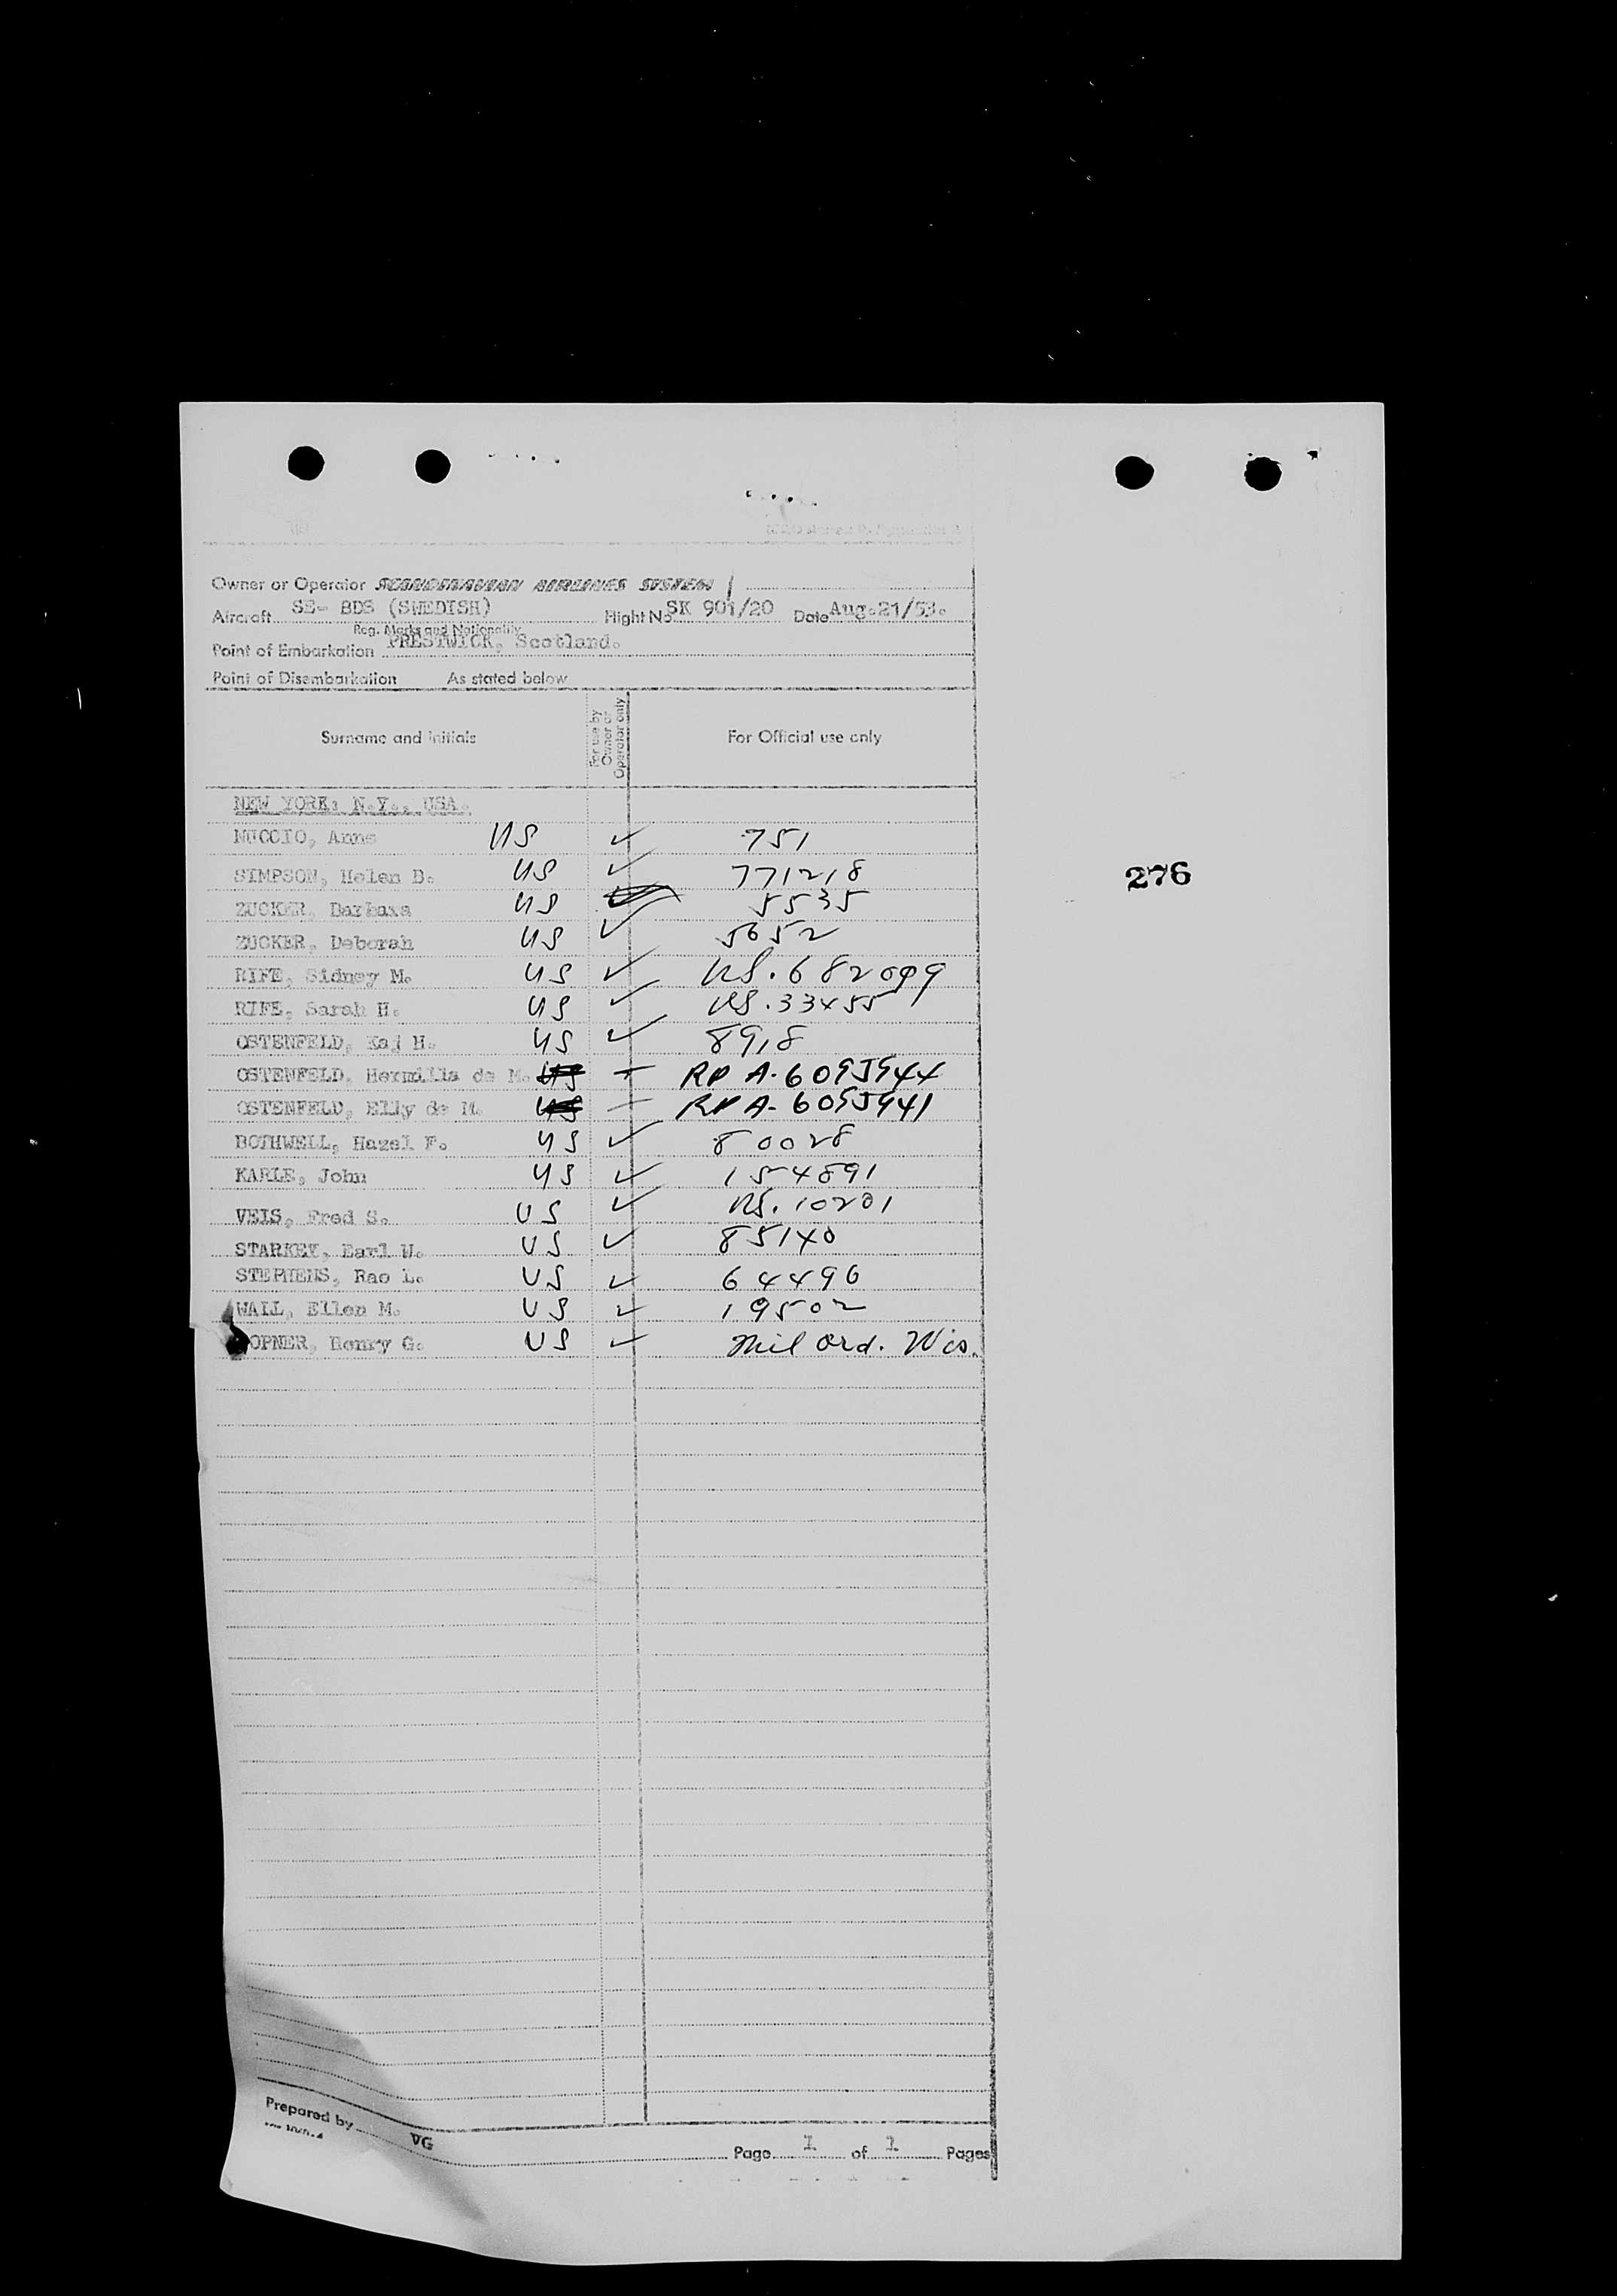 Owner or Operator SCANDINAVIAN AIRLINES SYSTEM
Aircraft SE- BDS (SWEDISH) Flight No SK 901/20 Date Aug.21/53.
Reg. Marks and Nationality
Point of Embarkation PRESTWICK, Scotland.
Point of Disembarkation As stated below
Surname and initials For use by Owner or Operator only For Official use only
NEW YORK: N.Y., USA.
NUCCIO, Anne US ✓ 751
276
SIMPSON, Helen B. US ✓ 771218
ZUCKER, Barbara US 5535
ZUCKER, Deborah US ✓ 5652
RIFE, Sidney M. US ✓ US.682099
RIFE, Sarah H. US ✓ US.33455
OSTENFELD, Kaj H. US ✓ 8918
OSTENFELD, Hermilia de M. US RP A-6095944
OSTENFELD, Elly de M. US RP A-6095941
BOTHWELL, Hazel F. US ✓ 80028
KARLE, John US ✓ 154891
VEIS, Fred S. US ✓ US.10201
STARKEY, Earl W. US ✓ 85140
STEPHENS, Rae L. US ✓ 64496
WALL, Ellen M. US ✓ 19502
OPNER, Henry G. US ✓ Mil Ord. Wis.
Prepared by VG
Page 1 of 1 Pages